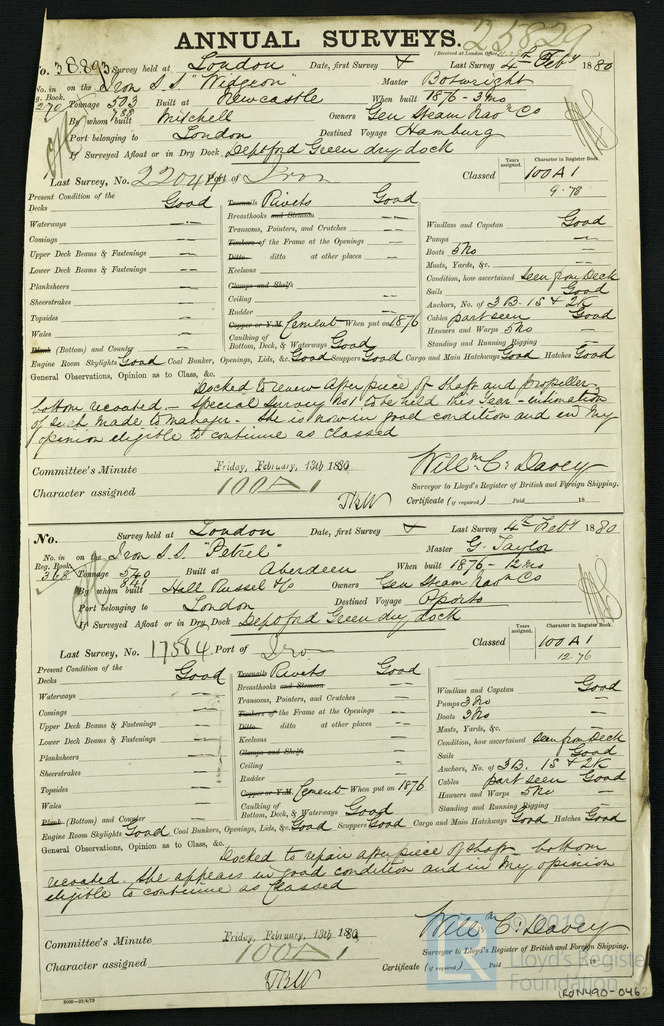 25829
ANNUAL SURVEYS.
(Received at London Office
No. 38893 Survey held at London Date, first Survey Last Survey 4th Feby 1880
No. in on the Iron S.S. "Widgeon" Master Botwright
Reg. Book. 270 Tonnage 503 Built at Newcastle When built 1876 - 3mo
788
By whom built Mitchell Owners Gen Steam Navn Co
Port belonging to London Destined Voyage Hamburg
If Surveyed Afloat or in Dry Dock Deptford Green dry dock
Last Survey, No. 22044 Port of Iron Classed Years assigned. Character in Register Book. 100 A 1
9.78
Present Condition of the
Decks Good Treenails Rivets Good
Waterways — Breasthooks and Stemson — Windlass and Capstan Good
Comings — Transoms, Pointers, and Crutches — Pumps —
Upper Deck Beams & Fastenings — Timbers of the Frame at the Openings — Boats 5 No —
Lower Deck Beams & Fastenings — Ditto ditto at other places — Masts, Yards, &c. —
Planksheers — Keelsons — Condition, how ascertained Seen from Deck
Sheerstrakes — Clamps and Shelfs Sails Good
Topsides — Ceiling — Anchors, No. of 3 B. 1S & 2K
Wales — Rudder — Cables part seen Good
Copper or Y.M. Cement When put on 1876 Hawsers and Warps 5 No —
Plank (Bottom) and Counter — Caulking of Bottom, Deck, & Waterways Good Standing and Running Rigging —
Engine Room Skylights Good Coal Bunker, Openings, Lids, &c. Good Scuppers Good Cargo and Main Hatchways Good Hatches Good
General Observations, Opinion as to Class, &c.
Docked to renew after piece of shaft and propeller.
bottom recoated. — Special Survey No 1 to be held this year - intimation
of such made to manager. She is now in good condition and in my
opinion eligible to continue as classed
Committee's Minute Friday, February, 13th 1880 Willm C. Davey
Character assigned 100 A 1 Surveyor to Lloyd's Register of British and Foreign Shipping.
Certificate (if required) Paid 18
No. Survey held at London Date, first Survey Last Survey 4th Feby 1880
No. in on the Iron S.S. "Petrel" Master G. Taylor
Reg. Book. 368 Tonnage 540 Built at Aberdeen When built 1876 - 12 mo
By whom built Hall Russel & Co Owners Gen Steam Navn Co
Port belonging to London Destined Voyage Oporto
If Surveyed Afloat or in Dry Dock Deptford Green dry dock
Last Survey, No. 17584 Port of Iron Classed Years assigned. Character in Register Book. 100 A 1
12.76
Present Condition of the
Decks Good Treenails Rivets Good
Waterways — Breasthooks and Stemson — Windlass and Capstan Good
Comings — Transoms, Pointers, and Crutches — Pumps 3 No —
Upper Deck Beams & Fastenings — Timbers of the Frame at the Openings — Boats 3 No —
Lower Deck Beams & Fastenings — Ditto ditto at other places — Masts, Yards, &c. —
Planksheers — Keelsons — Condition, how ascertained Seen from Deck
Sheerstrakes — Clamps and Shelfs Sails Good
Topsides — Ceiling — Anchors, No. of 3 B. 1S & 2K
Wales — Rudder — Cables part seen Good
Copper or Y.M. Cement When put on 1876 Hawsers and Warps 5 No —
Plank (Bottom) and Counter — Caulking of Bottom, Deck, & Waterways Good Standing and Running Rigging —
Engine Room Skylights Good Coal Bunkers, Openings, Lids, &c. Good Scuppers Good Cargo and Main Hatchways Good Hatches Good
General Observations, Opinion as to Class, &c.
Docked to repair after piece of shaft - bottom
recoated. She appears in good condition and in my opinion
eligible to continue as classed
Committee's Minute Friday, February, 13th 1880 Willm C. Davey
Character assigned 100 A 1 Surveyor to Lloyd's Register of British and Foreign Shipping.
Certificate (if required) Paid 18
© 2019
Lloyd's Register
Foundation
IRON490-0462